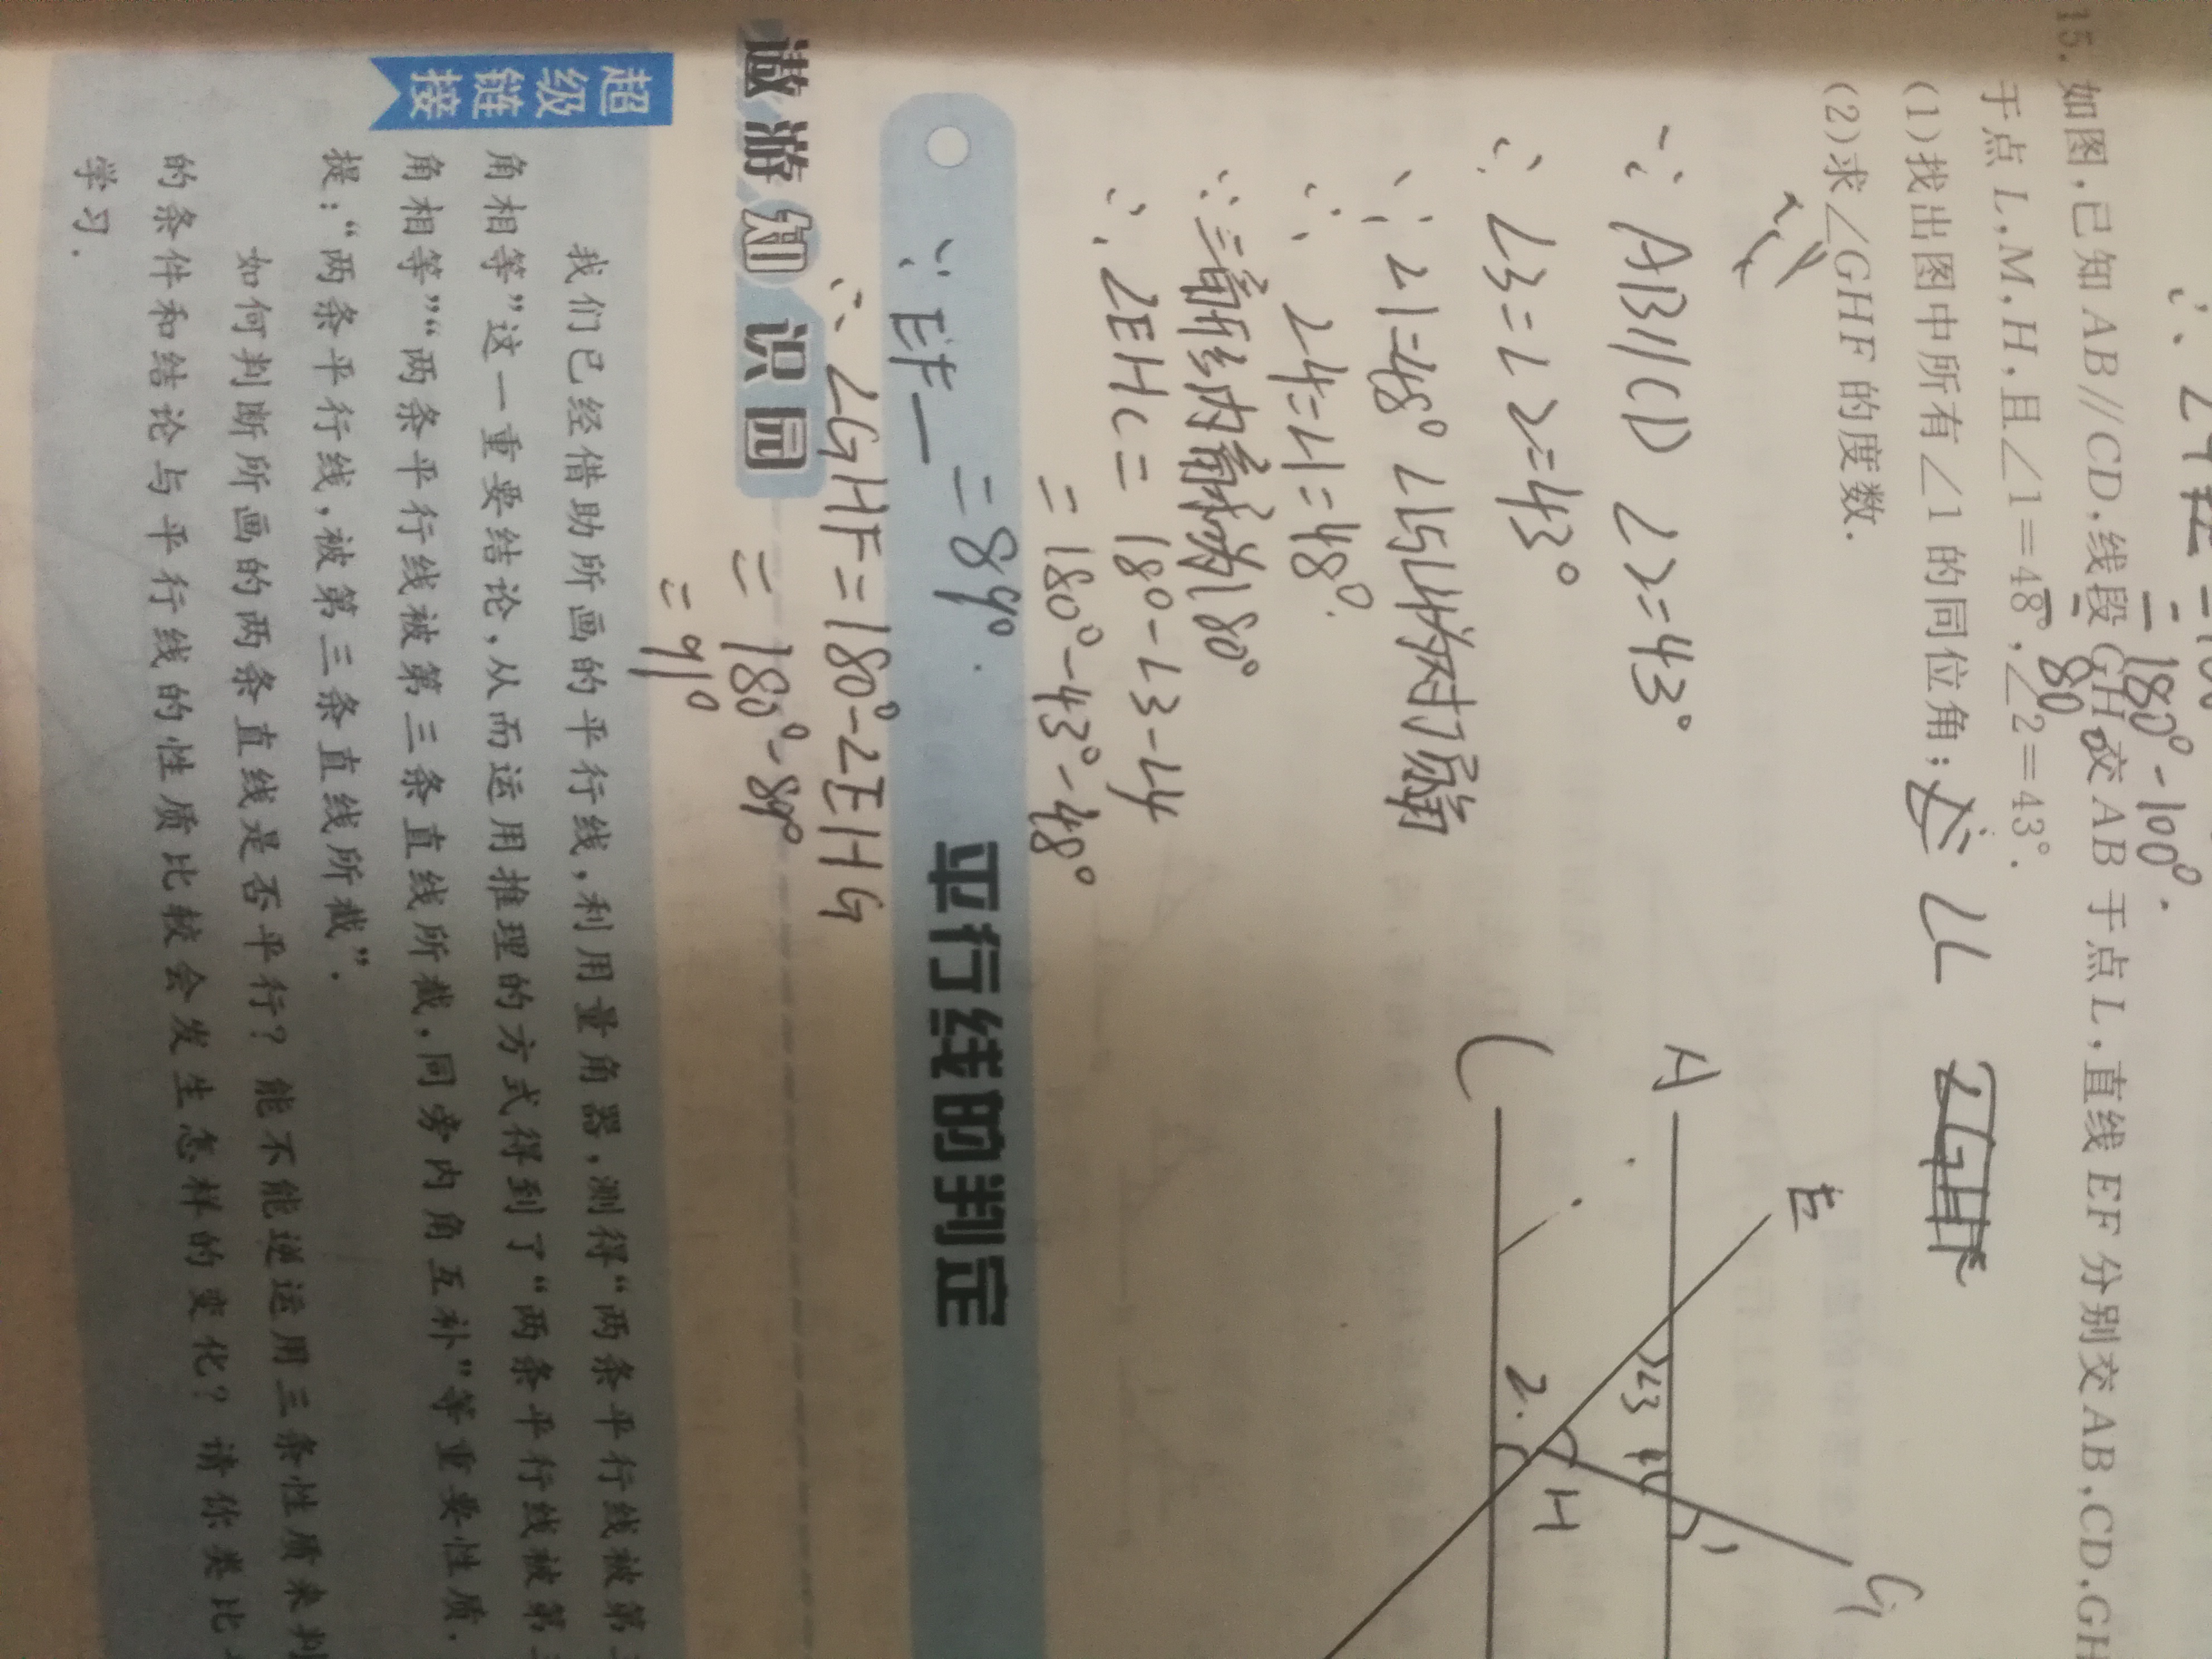 = 180° - 100°.
= 80°
15. 如图,已知AB//CD,线段GH交AB于点L,直线EF分别交AB,CD,GH
于点L,M,H,且∠1=48°,∠2=43°.
(1)找出图中所有∠1的同位角;
(2)求∠GHF的度数.
∵ AB//CD ∠2=43°
∴ ∠3=∠2=43°
∵ ∠1=48° ∠1与∠4为对顶角
∴ ∠4=∠1=48°.
∵ 三角形内角和为180°
∴ ∠EHG = 180-∠3-∠4
= 180°-43°-48°
= 89°.
∵ EF一
∴ ∠GHF=180°-∠EHG
= 180°-89°
= 91°
A
C
E
∠3
4
2
H
1
G
平行线的判定
遨游知识园
超级链接
我们已经借助所画的平行线,利用量角器,测得“两条平行线被第
角相等”这一重要结论,从而运用推理的方式得到了“两条平行线被第
角相等”“两条平行线被第三条直线所截,同旁内角互补”等重要性质.
提:“两条平行线,被第三条直线所截”.
如何判断所画的两条直线是否平行?能不能逆运用三条性质来判
的条件和结论与平行线的性质比较会发生怎样的变化?请你类比
学习.